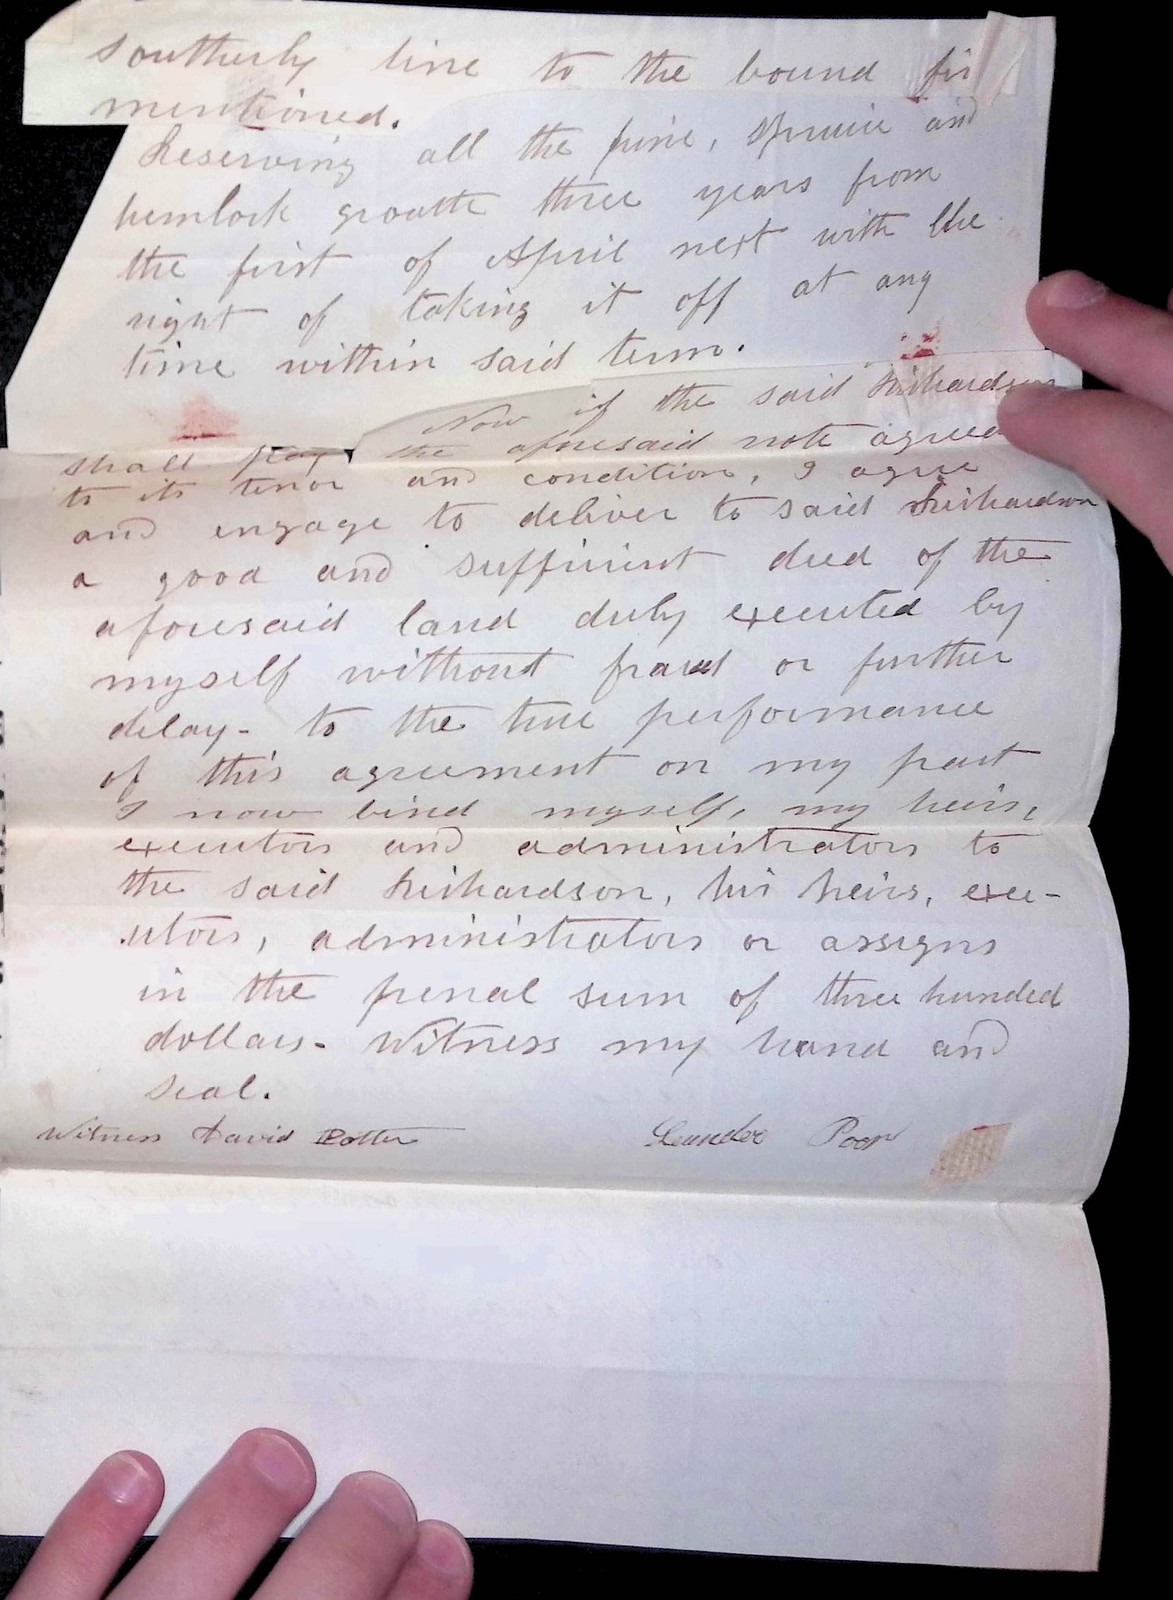 southerly line to the bound fir
mentioned.
Reserving all the pine, spruce and
hemlock growth three years from
the first of April next with the
right of taking it off at any
time within said term.
Now if the said Richardson
shall pay the aforesaid note agreea
to its tenor and condition, I agree
and engage to deliver to said Richardson
a good and sufficient deed of the
aforesaid land duly executed by
myself without fraud or further
delay - to the true performance
of this agreement on my part
I now bind myself, my heirs,
executors and administrators to
the said Richardson, his heirs, exe-
utors, administrators or assigns
in the penal sum of three hunded
dollars - Witness my hand and
seal.
Witness David Potter Leander Poor